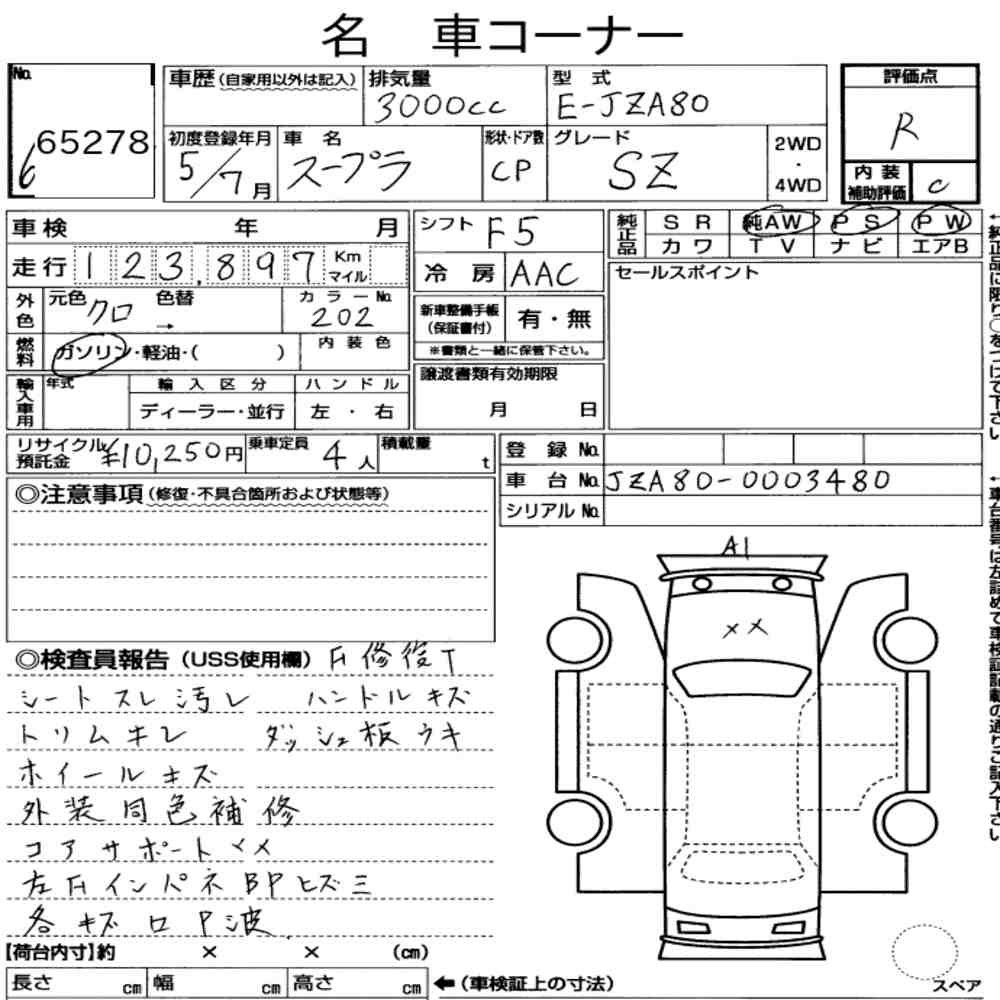 名 車コーナー
No. 65278
6
車歴(自家用以外は記入)
排気量 3000cc
型式 E-JZA80
評価点 R
初度登録年月 5/7月
車名 スープラ
形状・ドア数 CP
グレード SZ
2WD・4WD
内装補助評価 C
車検 年 月
シフト F5
純正品 SR 純AW PS PW
カワ TV ナビ エアB
走行 123,897 Km マイル
冷房 AAC
セールスポイント
外色 元色 クロ 色替 → カラーNo. 202
新車整備手帳(保証書付) 有・無
※書類と一緒に保管下さい。
燃料 ガソリン・軽油・( ) 内装色
輸入車用 年式 輸入区分 ハンドル
ディーラー・並行 左・右
譲渡書類有効期限
月 日
リサイクル預託金 ¥10,250円
乗車定員 4人
積載量 t
登録No.
車台No. JZA80-0003480
シリアルNo.
◎注意事項(修復・不具合箇所および状態等)
◎検査員報告(USS使用欄) Fi修復T
シートスレ汚レ ハンドルキズ
トリムキレ ダッシュ板ウキ
ホイールキズ
外装同色補修
コアサポートXX
左FiインパネBPヒズミ
各キズロP波
A1
XX
【荷台内寸】約 × × (cm)
長さ cm 幅 cm 高さ cm ←(車検証上の寸法)
スペア
←純正品に限り○をつけて下さい
←車台番号は左詰めで車検証記載の通りご記入下さい